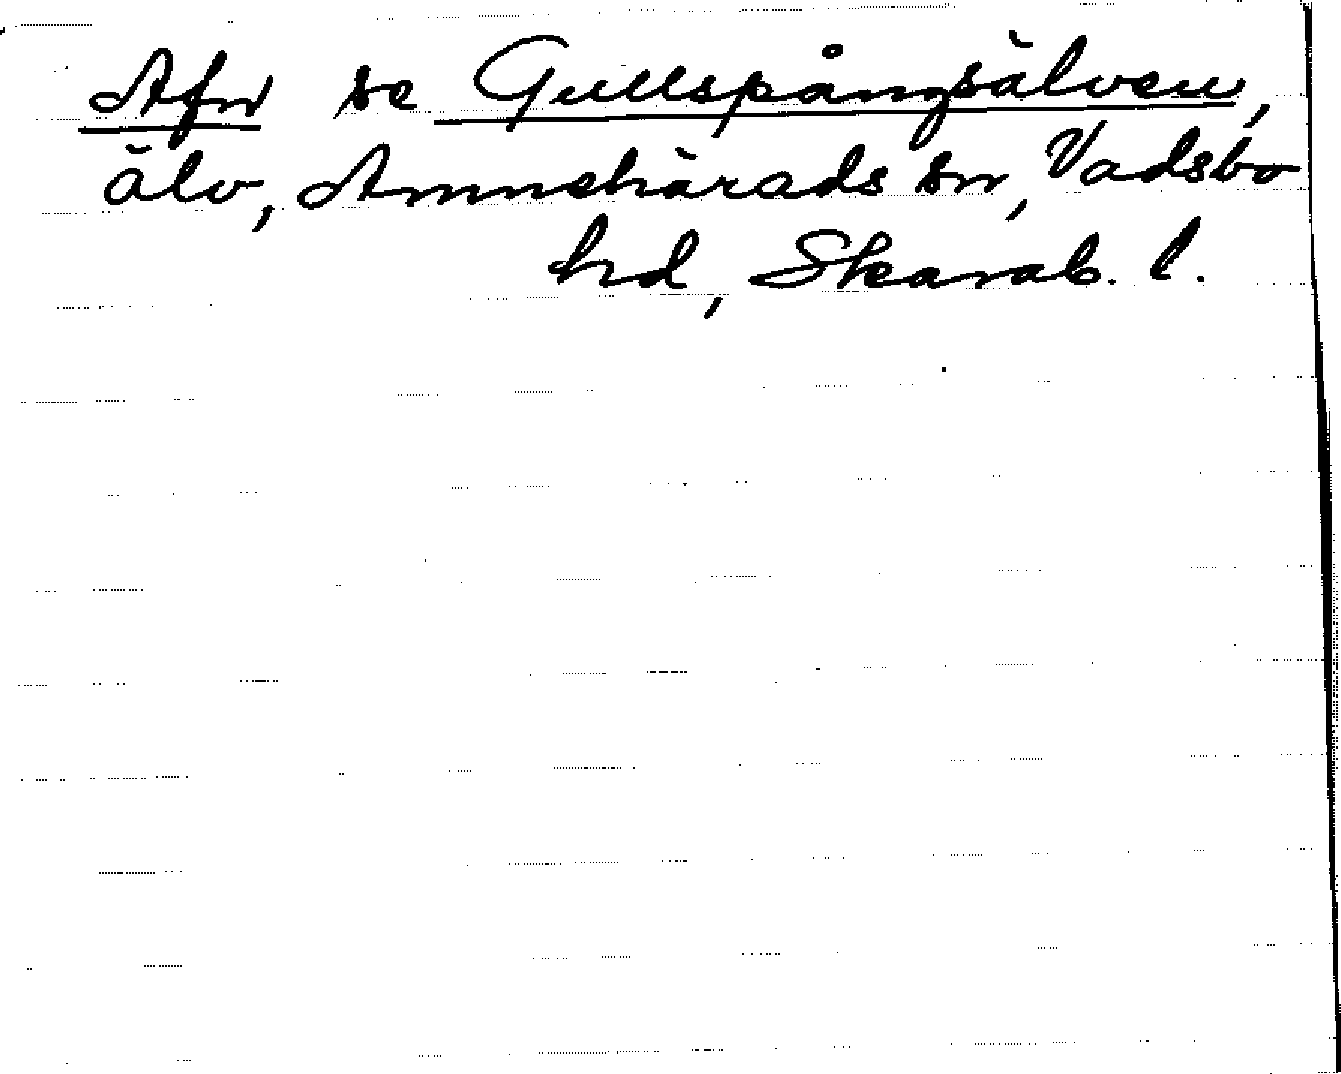 Afn se Gullspångsälven,
älv, Amnehärads sn, Vadsbo
hd, Skarab. l.